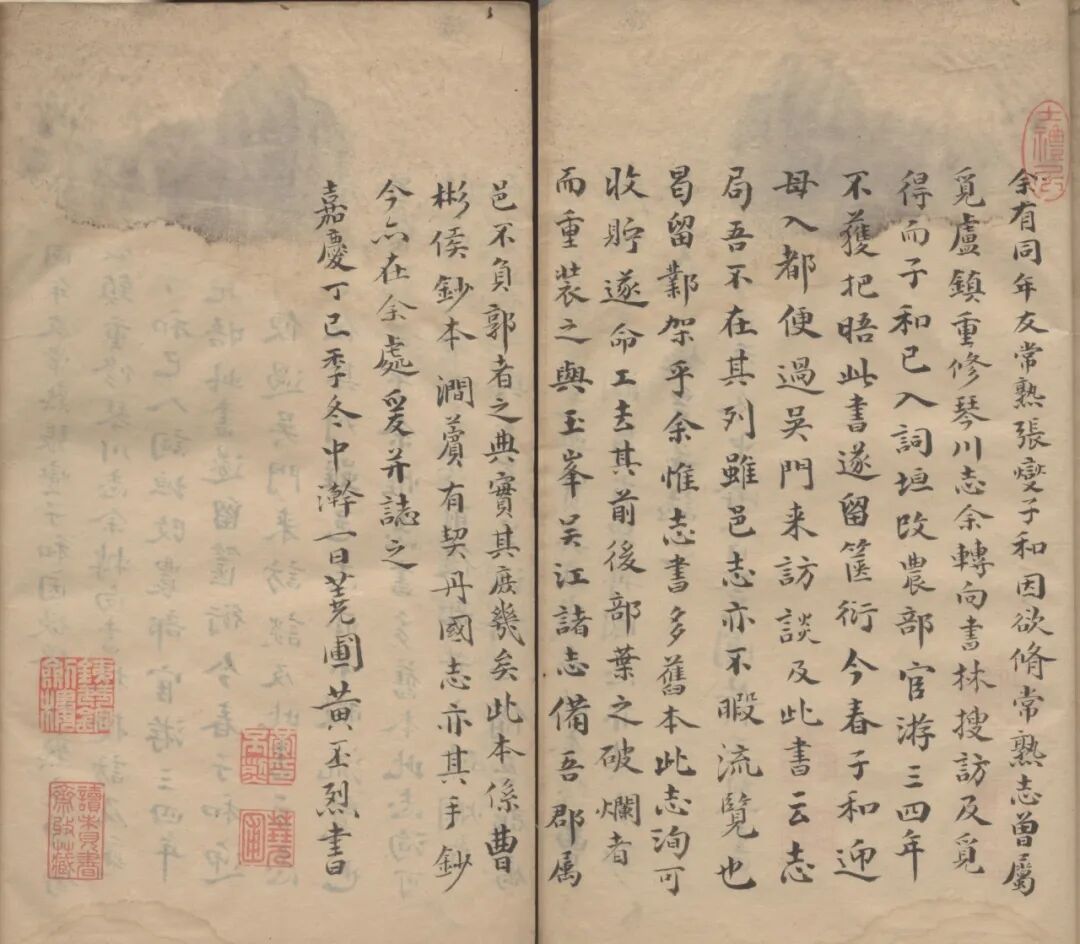 余有同年友常熟張燮子和因欲脩常熟志曾屬
覓盧鎮重修琴川志余轉向書林搜訪及覓
得而子和已入詞垣改農部官游三四年
不獲把晤此書遂留篋衍今春子和迎
母入都便過吳門来訪談及此書云志
局吾不在其列雖邑志亦不暇流覽也
曷留鄴架乎余惟志書多舊本此志洵可
收貯遂命工去其前後部葉之破爛者
而重装之與玉峯吴江諸志備吾郡属
邑不負郭者之典實其庶幾矣此本係曹
彬侯鈔本澗薲有契丹國志亦其手鈔
今亦在余處爰并誌之
嘉慶丁巳季冬中澣一日蕘圃黄丕烈書
士禮居
鐵琴銅劍樓
讀未見書齋收藏